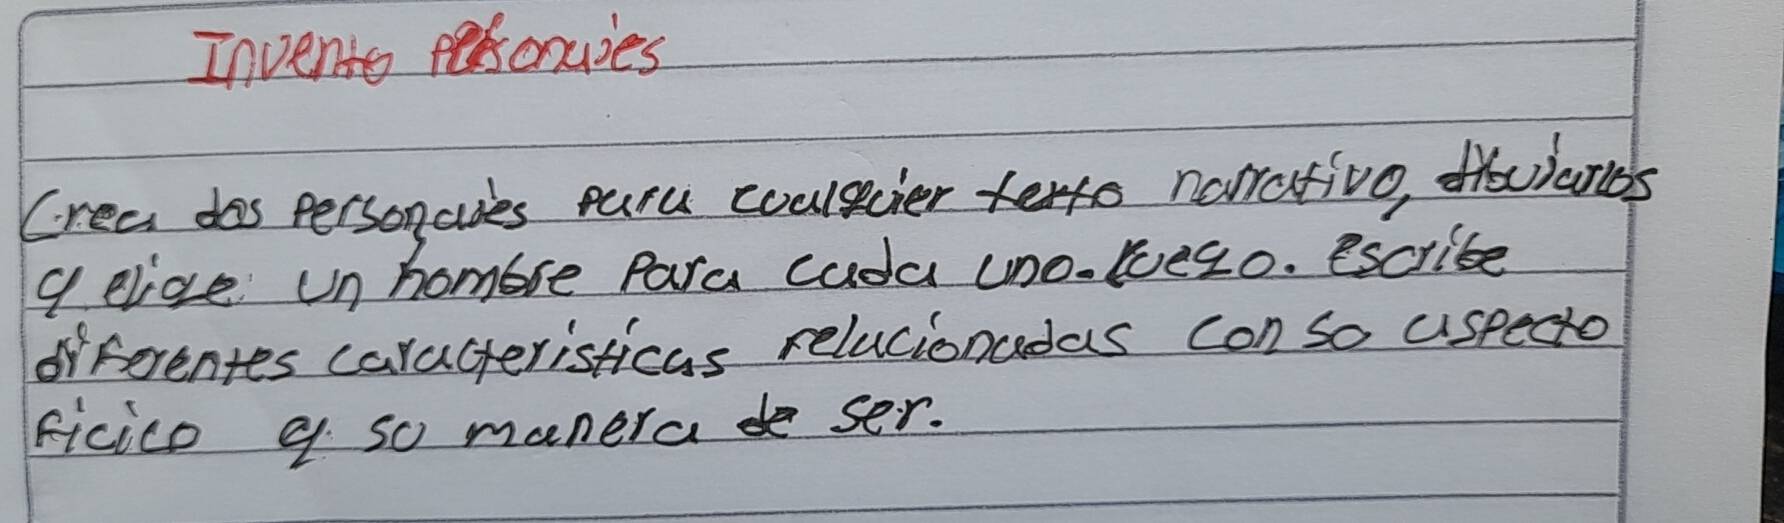 Invento personajes
Crea dos personajes para cualquier texto narrativo, dibujarlos
y elige: un nombre para cada uno. luego. Escribe
diferentes caracteristicas relacionadas con so aspecto
ficico y so manera de ser.